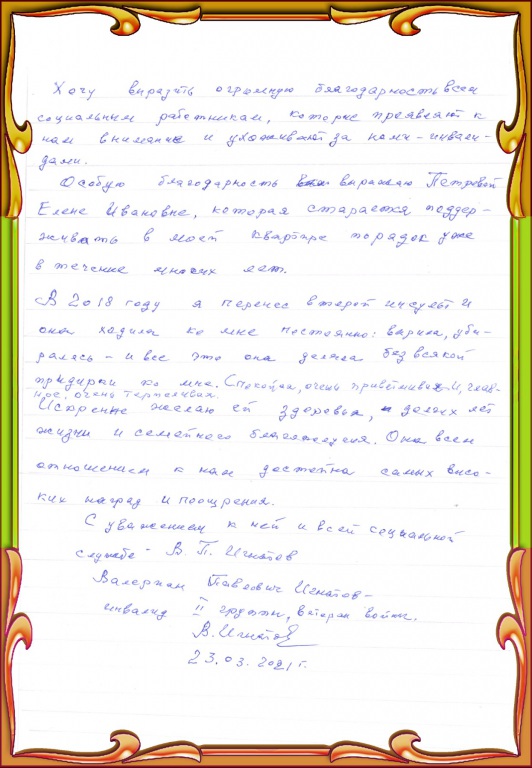 Хочу выразить огромную благодарность всем
социальным работникам, которые проявляют к
нам внимание и ухаживают за нами-инвали-
дами.
Особую благодарность выражаю Петровой
Елене Ивановне, которая старается поддер-
живать в моей квартире порядок уже
в течение многих лет.
В 2018 году я перенес второй инсульт и
она ходила ко мне постоянно: варила, уби-
ралась - и все это она делала без всякой
придирки ко мне. Спокойна, очень приветлива и, глав-
ное, очень терпелива.
Искренне желаю ей здоровья, долгих лет
жизни и семейного благополучия. Она всем
отношением к нам достойна самых высо-
ких наград и поощрения.
С уважением к ней и всей социальной
службе В. П. Игнатов
Валериан Павлович Игнатов-
инвалид II группы, ветеран войны.
В.Игнатов
23.03.2021 г.